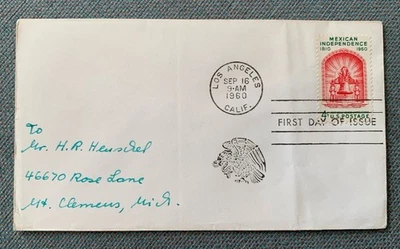 MEXICAN
INDEPENDENCE
1810 1960
4¢ U.S. POSTAGE
LOS ANGELES
SEP 16
9-AM
1960
CALIF.
FIRST DAY OF ISSUE
To
Mr. H.R. Henschel
46670 Rose Lane
Mt. Clemens, Mich.